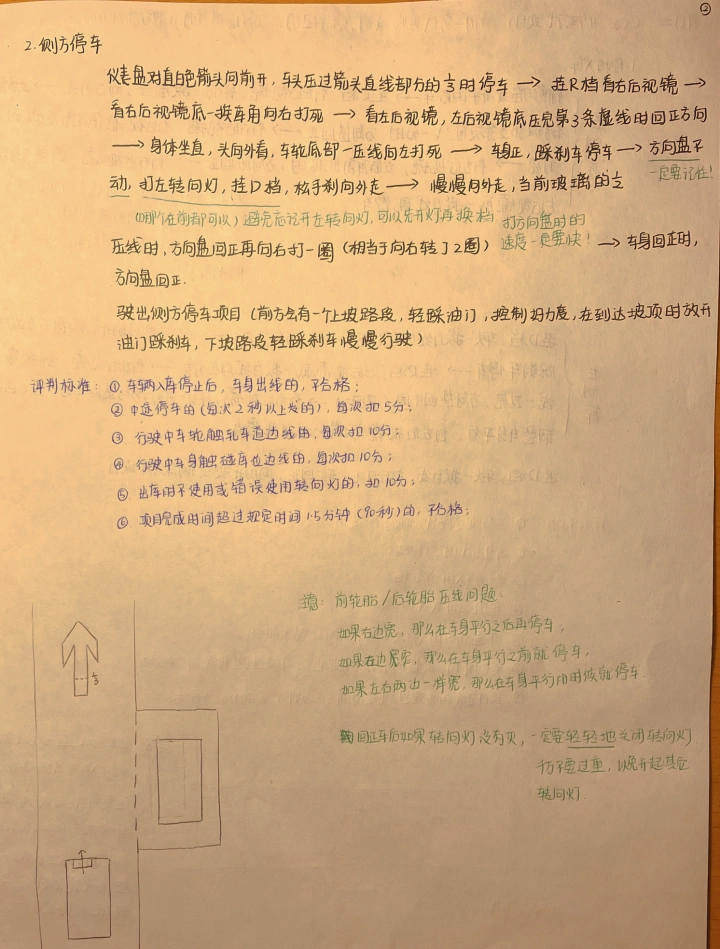 ②
2. 侧方停车
仪表盘对直白色箭头向前开，车头压过箭头直线部分的1/3时停车 → 挂R档看右后视镜 →
看右后视镜底一挨库角向右打死 → 看左后视镜，左后视镜底压完第3条虚线时回正方向
→ 身体坐直，头向外看，车轮底部一压线向左打死 → 车身正，踩刹车停车 → 方向盘不
动，打左转向灯，挂D档，松手刹向外走 → 慢慢向外走，当前玻璃的1/2
一定要记住！
(哪个在前都可以) 避免忘记开左转向灯，可以先开灯再换档
打方向盘时的
速度一定要快！
压线时，方向盘回正再向右打一圈（相当于向右转了2圈） → 车身回正时，
方向盘回正.
驶出侧方停车项目（前方会有一个上坡路段，轻踩油门，控制好力度，在到达坡顶时放开
油门踩刹车，下坡路段轻踩刹车慢慢行驶）
评判标准：① 车辆入库停止后，车身出线的，不合格；
② 中途停车的（每次2秒以上发的），每次扣5分；
③ 行驶中车轮触轧车道边线的，每次扣10分；
④ 行驶中车身触碰库位边线的，每次扣10分；
⑤ 出库时不使用或错误使用转向灯的，扣10分；
⑥ 项目完成时间超过规定时间1.5分钟（90秒）的，不合格；
注：前轮胎/后轮胎压线问题
如果右边宽，那么在车身平行之后再停车；
如果左边宽，那么在车身平行之前就停车；
如果左右两边一样宽，那么在车身平行的时候就停车.
回正车后如果转向灯没有灭，一定要轻轻地关闭转向灯
千万不要过重，以免开起其它
转向灯.
1/3